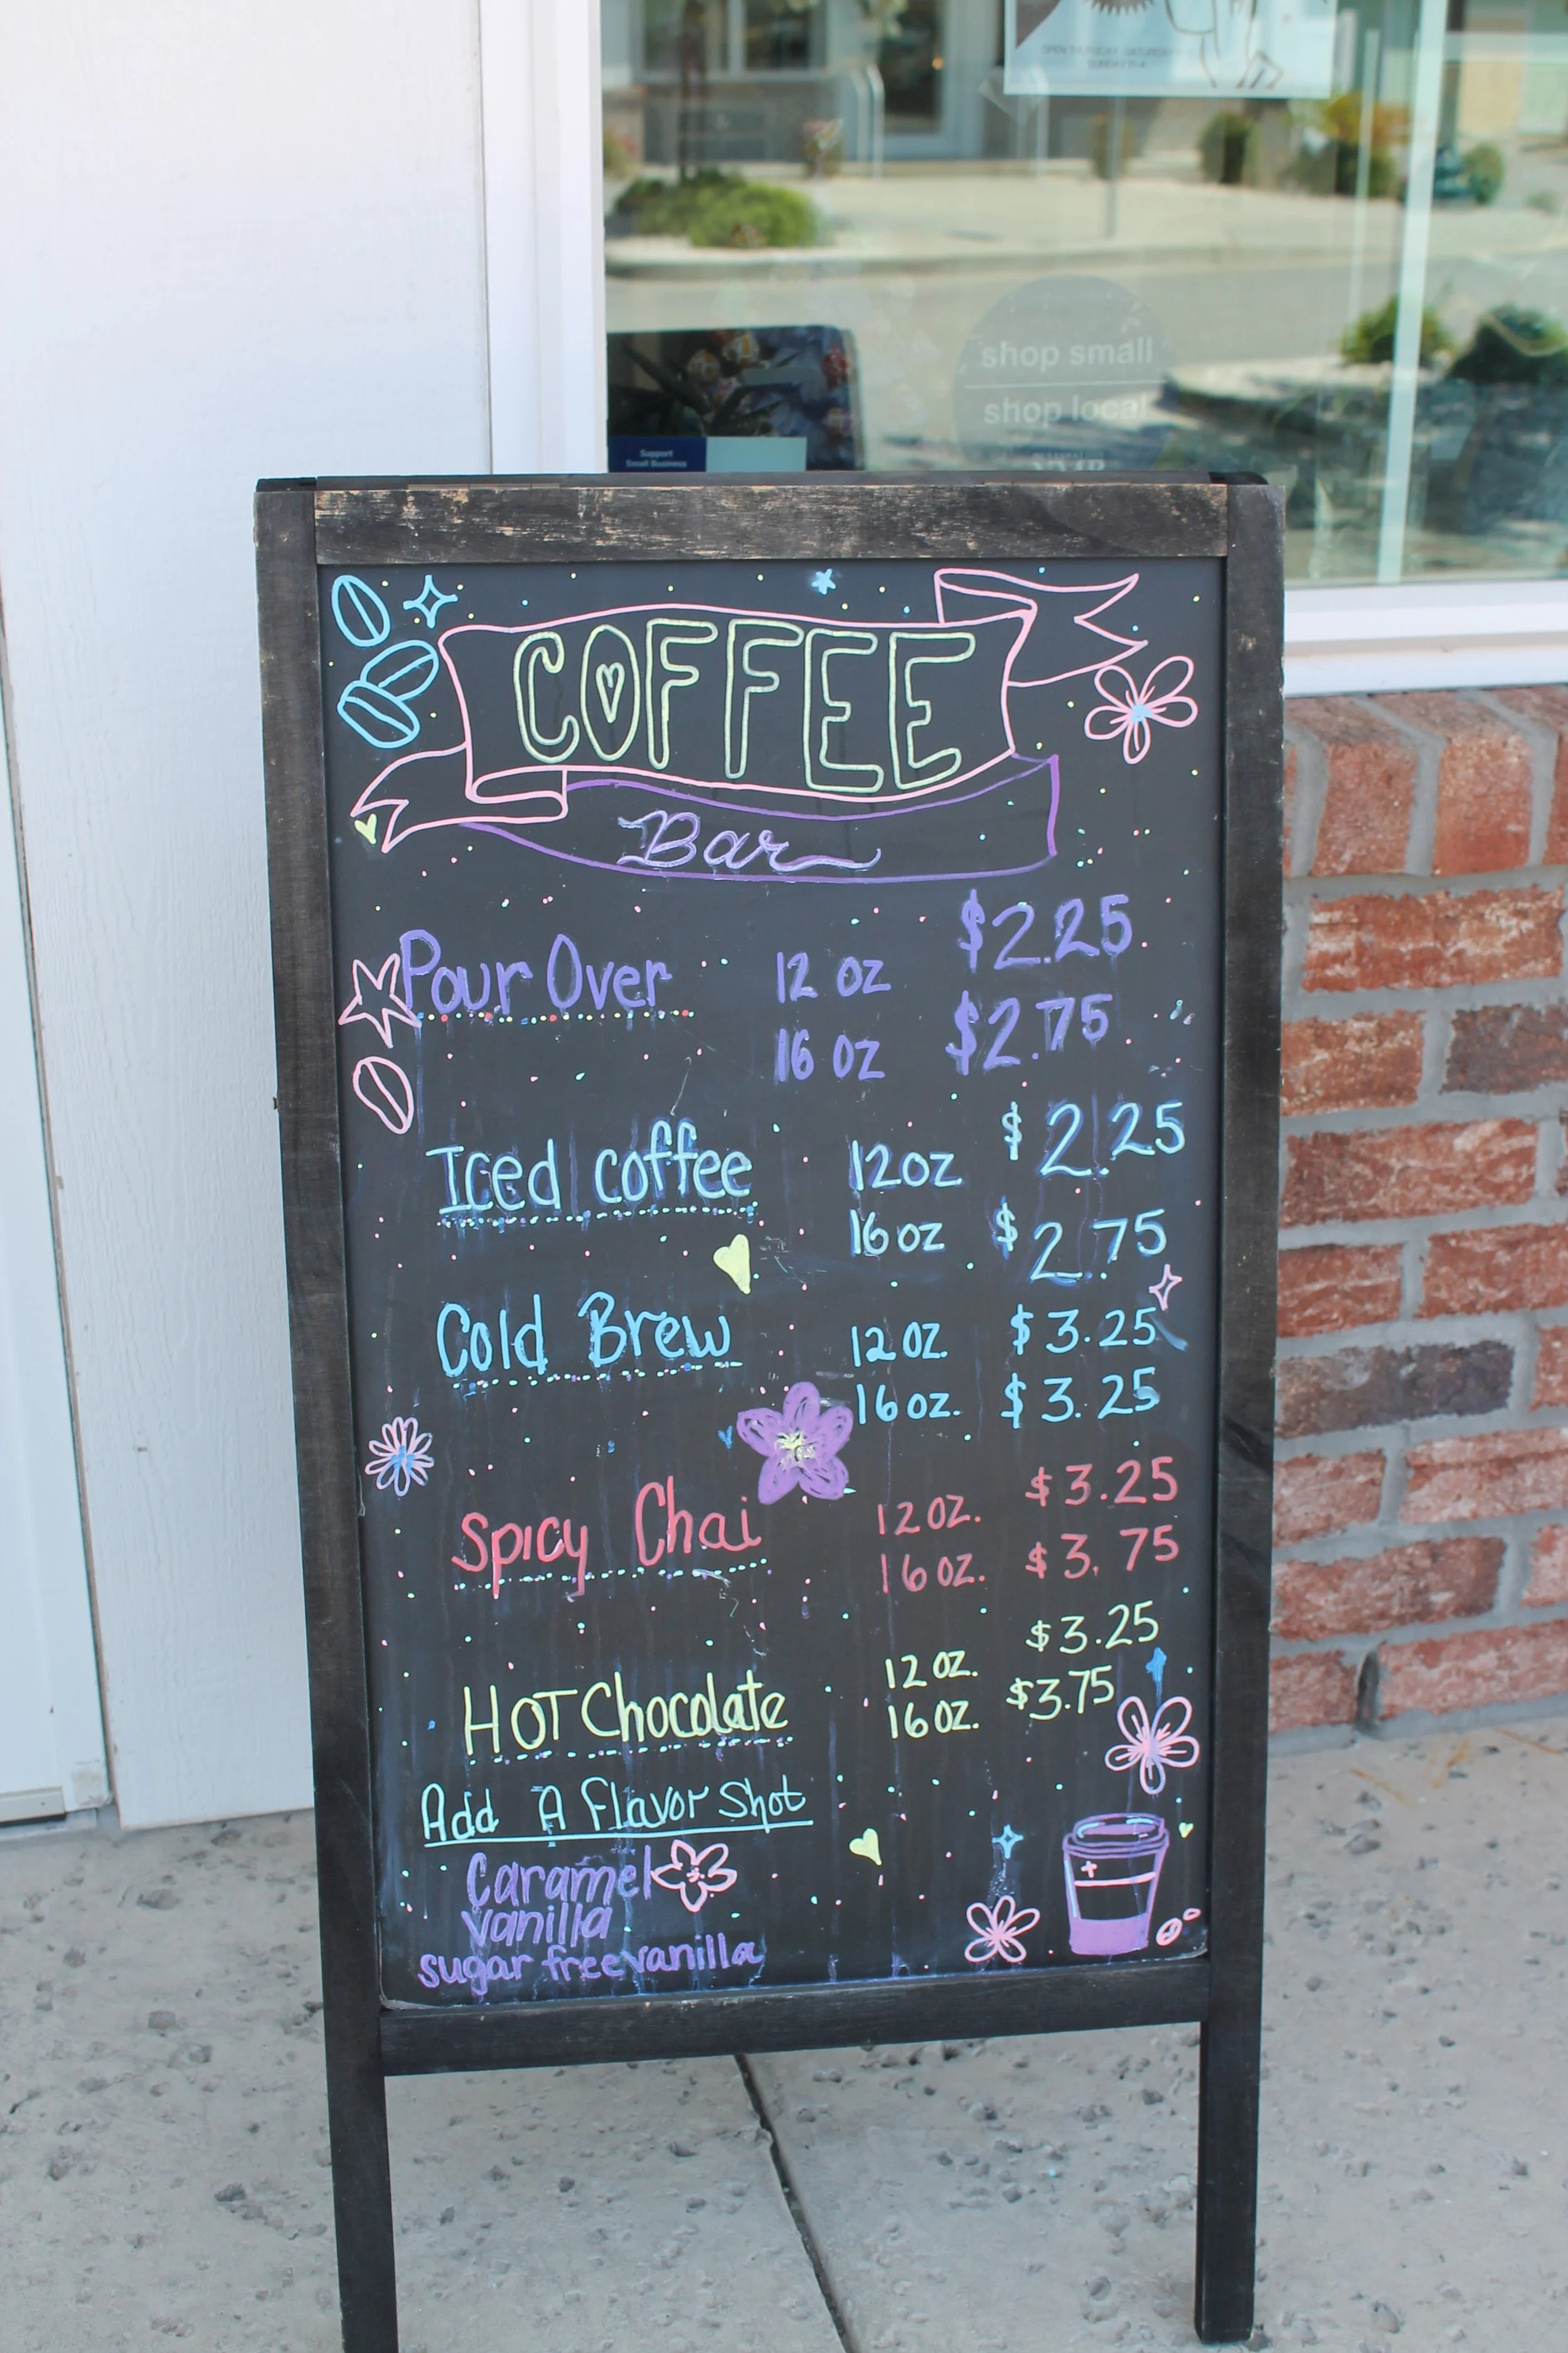 shop small
shop local
Support
Small Business
COFFEE
Bar
Pour Over 12 oz $2.25
16 oz $2.75
Iced coffee 12oz $2.25
16oz $2.75
Cold Brew 12oz. $3.25
16oz. $3.25
Spicy Chai 12oz. $3.25
16oz. $3.75
HOT Chocolate 12oz. $3.25
16oz. $3.75
Add A Flavor Shot
Caramel
vanilla
sugar free vanilla